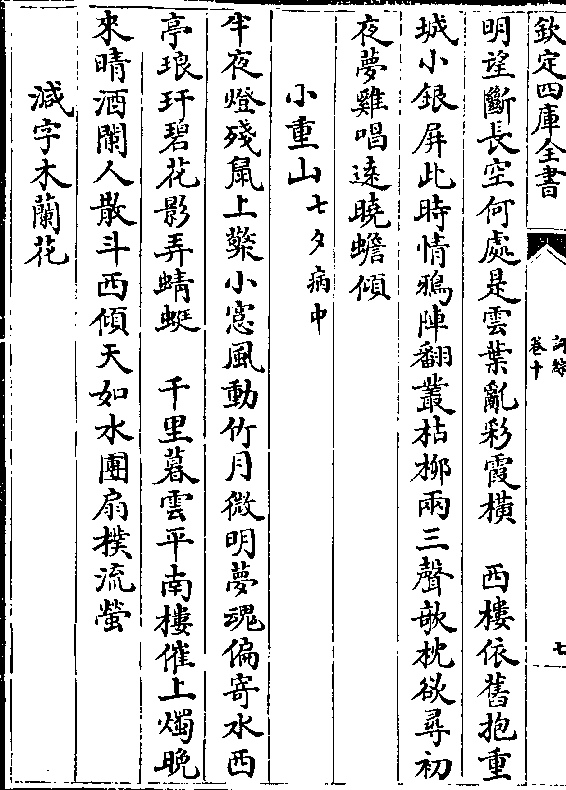 欽定四庫全書
詞綜
卷十
七
明望斷長空何處是雲葉亂彩霞橫　西樓依舊抱重
城小銀屏此時情鴉陣翻叢枯柳兩三聲欹枕欲尋初
夜夢雞唱遠曉蟾傾
小重山七夕病中
半夜燈殘鼠上檠小窓風動竹月微明夢魂偏寄水西
亭琅玕碧花影弄蜻蜓　千里暮雲平南樓催上燭晚
來晴酒闌人散斗西傾天如水團扇撲流螢
減字木蘭花